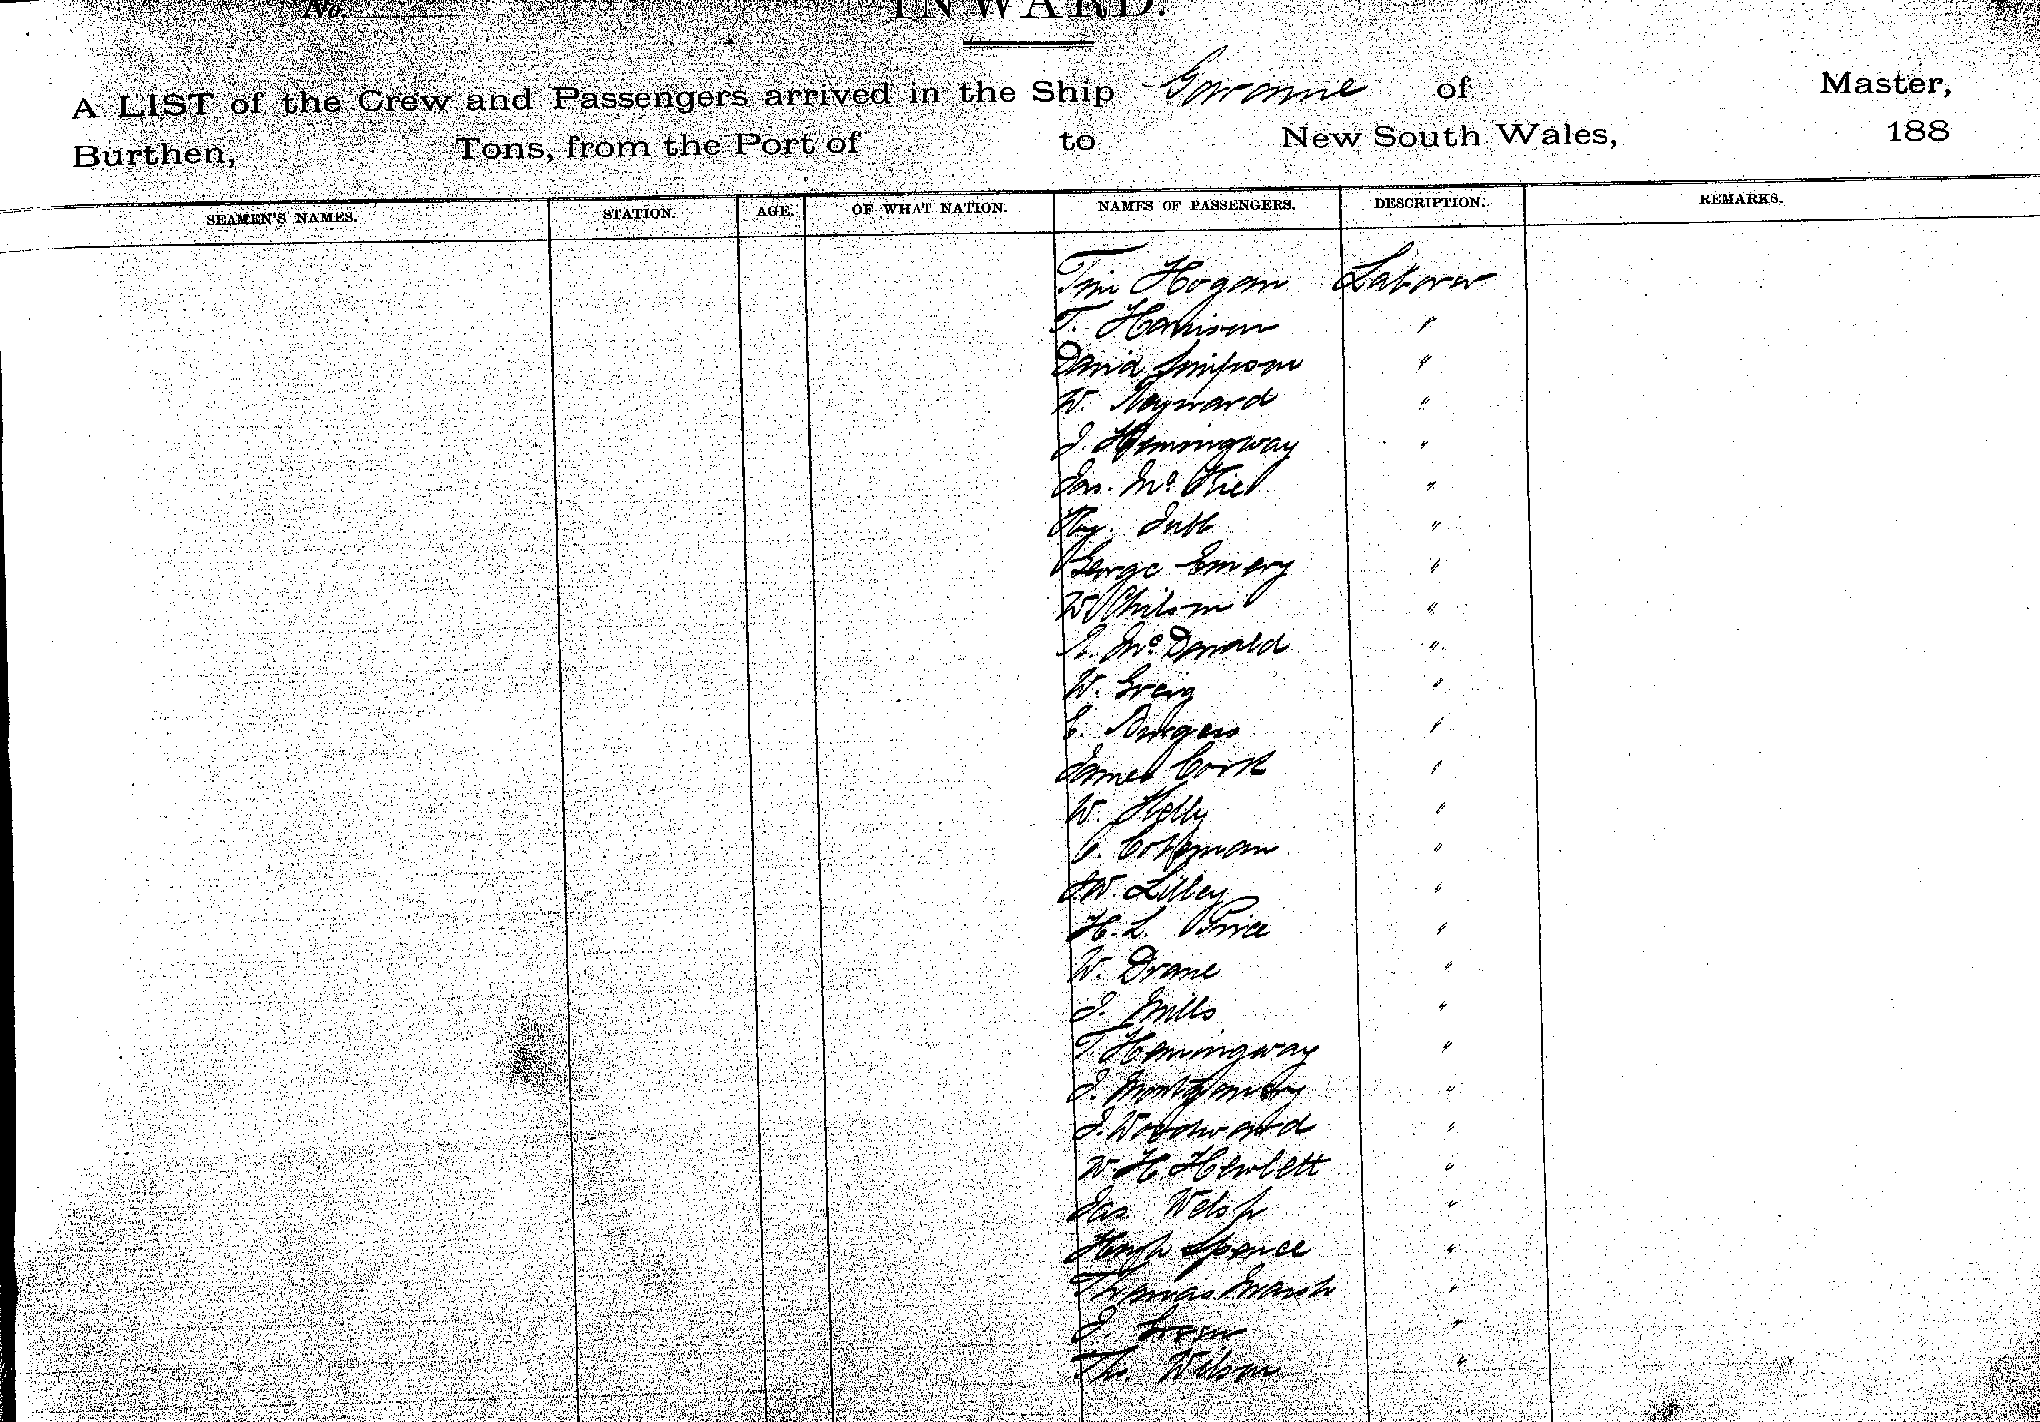 No.
INWARD.
A LIST of the Crew and Passengers arrived in the Ship Garonne of Master,
Burthen, Tons, from the Port of to New South Wales, 188
SEAMEN'S NAMES. STATION. AGE. OF WHAT NATION. NAMES OF PASSENGERS. DESCRIPTION. REMARKS.
Tim Hogan Laborer
T. Harrison "
David Simpson "
W. Hayward "
J. Hemingway "
Jas. Mc "
Jubb "
George Emery "
W "
Mc Donald "
W. Greig "
E. Burgess "
James Cork "
W. Kelly "
C. "
J.W. Lilley "
H. L. Price "
W. Drane "
J. Mills "
T. Hemingway "
J. Montgomery "
J. Woodward "
W. H. Hewlett "
Jas Welsh "
Hugh Spence "
Thomas Marsh "
J. "
Ths Wilson "